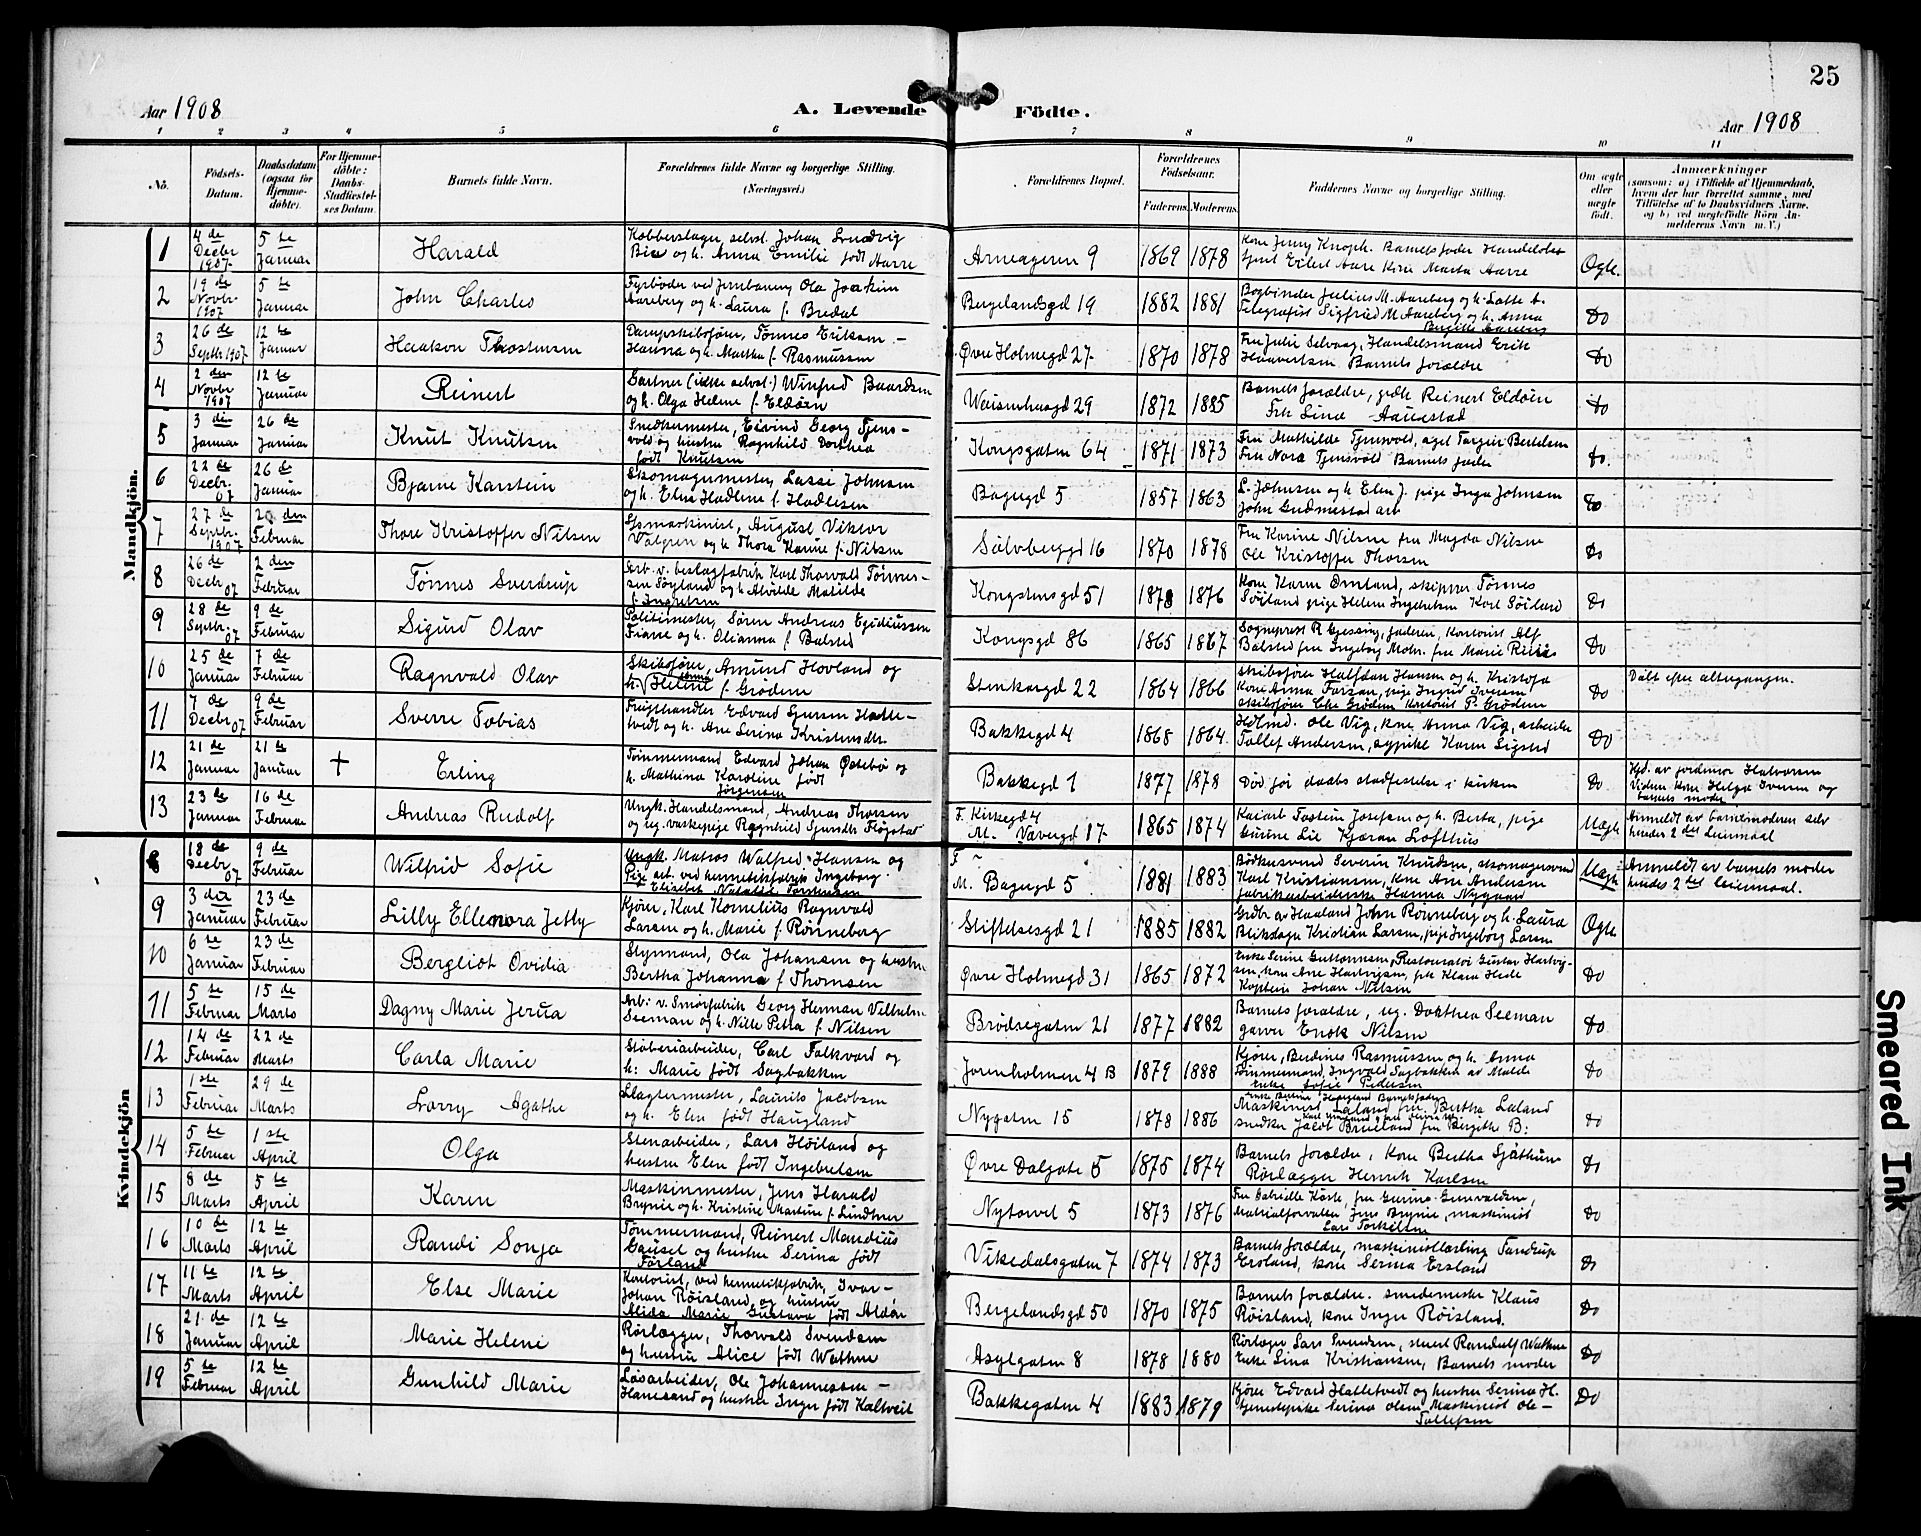 25
Aar 1908
A. Levende Födte.
Aar 1908
1 2 3 4 5 6 7 8 9 10 11
No.
Födsels-Datum.
Daabsdatum (ogsaa for Hjemme-döbte).
For Hjemme-döbte: Daabs-Stadfæstel-ses Datum.
Barnets fulde Navn.
Forældrenes fulde Navne og borgerlige Stilling. (Næringsvei.)
Forældrenes Bopæl.
Forældrenes Födselsaar.
Faderens. Moderens.
Faddernes Navne og borgerlige Stilling.
Om ægte eller uægte födt.
Anmærkninger
(saasom: a) i Tilfælde af Hjemmedaab, hvem der har forrettet samme, med Tilföielse af to Daabsvidners Navne, og b) ved uægtefödte Börn An-melderens Navn m. V.)
Mandkjön.
1 4 de Decbr 1907 5 te Januar Harald Kobberslager, selvst. Johan Ludvig
Bie og h. Anna Emilie født Aarre Arneageren 9 1869 1878 Kone Jenny Knoph. Barnets fader Handelsbet
Eilert Aare Kone Marta Aarre Ægte.
2 19 de Novbr 1907 5 te Januar John Charles Fyrbøder ved Jernbanen, Ola Joakim
Aareberg og h. Laura f. Bredal Bergelandsgd 19 1882 1881 Bogbinder Julius M. Aareberg og h. Lotte A.
Telegrafist Sigfried M Aareberg og h. Anna Do
3 26 de Septbr 1907 12 te Januar Haakon Thostensen Dampskibsfører, Tønnes Eriksen -
Hanna og h. Martha f. Rasmussen Øvre Holmegd 27 1870 1878 Fru Julie Selvaag, Handelsmand Erik
Haavertsen Barnets forældre Do
4 2 den Novbr 1907 12 te Januar Reinert Gartner (ikke selvst.) Winfred Baardsen
og h. Olga Helene f. Eldøen Waisenhusgd 29 1872 1885 Barnets forældre, gdk Reinert Eldøen
Frk Lina Aauestad Do
5 3 die Januar 26 de Januar Knut Knutsen Snedkermester, Eivind Georg Tjens-
vold og hustru Ragnhild Dorthea
født Knutsen Kongsgaten 64 1871 1873 Fru Mathilde Tjensvold, agent Torgeir Bertelsen
Fru Nora Tjensvold Barnets fader Do.
6 22 de Decbr. 07 26 de Januar Bjarne Karstein Skomagermester, Lassi Johnsen
og h. Elen Hadline f. Hadlesen Bagergd 5 1857 1863 L. Johnsen og h. Elen J. pige Inga Johnsen
John Gudmestad arb Do
7 27 de Septbr. 1907 2 den Februar Thore Kristoffer Nilsen Ismaskinist, August Viktor
Valgren og h Thora Karine f. Nilsen Sølvberggd 16 1870 1878 Fru Karine Nilsen fru Magda Nilsen
Ole Kristoffer Thorsen Do
8 26 de Decbr 07 2 den Februar Tønnes Sverdrup Arb. v. beslagfabrik Karl Thorvald Tønnes-
sen Søyland og h Alvilde Matilde
f. Ingebretsen Kongstensgd 51 1878 1876 Kone Karen Omland, skipper Tønnes
Søiland pige Helene Ingebretsen Karl Søiland Do
9 28 de Septbr. 07 9 de Februar Sigurd Olav Politimester, Søren Andreas Egidiussen
Fiane og h. Olianna f. Balsted Kongsgd 86 1865 1867 Sogneprest R Gjessing, faderen, Kontorist Alf
Balsted fru Ingeborg Mohr. fru Marie Riis Do
10 25 de Januar 7 de Februar Ragnvald Olav Skibsfører, Amund Hovland og
h. Helene f. Grødem Stenkargd 22 1864 1866 Skibsfører Halfdan Hansen og h. Kristofa
Kone Anna Forsan, pige Ingrid Iversen
skibsfører Chr Grødem Kontorist P. Grødem Do Døbt efter altergangen.
11 7 de Decbr 07 9 de Februar Sverre Tobias Frugthandler Edvard Sjursen Hatte-
tvedt og h. Ane Serina Kristensdtr. Bakkegd 4 1868 1864 Hdlmd. Ole Vig, kone Anna Vig, arbeider
Tollef Andersen, sypike Karen Sigsted Do
12 21 de Januar 21 te Januar + Erling Tømmermand Edvard Johan Østebø og
h. Mathina Karoline født
Jørgensen Bakkegd 1 1877 1878 Død før daabs stadfestelse i kirken Do Hjd. av jordmor Halvorsen
Vidner kone Helga Iversen og
barnets moder
13 23 de Januar 16 de Februar Andreas Rudolf Ungk. Handelsmand, Andreas Thorsen
og ug. vaskepige Ragnhild Sjursdtr Fløgstad F. Kirkegd 4
M. Vævergd 17 1865 1874 Kaiarb Tostein Josefsen og h. Berta, pige
Gurine Lie Kjæran Lofthus Uægte Anmeldt av barnemoderen selv
hendes 2 det leiermaal
Kvindekjön
8 18 de Decbr 07 9 de Februar Wilfrid Sofie Ungk. Matros Walfred Hansen og
Pige arb. ved hermetikfabrik Ingeborg
Elisebet Natalie Torstensen F. -
M. Bagergd 5 1881 1883 Bødkersvend Severin Knudsen, skomagersvend
Karl Kristiansen, Kone Ane Andersen
fabrikarbeiderske Hanna Nygaard Uægte Anmeldt av barnets moder
hendes 2 det leiermaal.
9 3 die Januar 23 de Februar Lilly Ellenora Jetty Kjører, Karl Kornelius Ragnvald
Larsen og h. Marie f. Rønneberg Stiftelsesgd 21 1885 1882 Grdbr av Haaland John Rønneberg og h. Laura
Blikslager Kristian Larsen, pige Ingeborg Larsen Ægte
10 6 te Januar 23 de Februar Bergliot Ovidia Styrmand, Ola Johansen og hustru
Bertha Johanna f Thomsen Øvre Holmegd 31 1865 1872 Enke Serine Guttormsen, Restauratør Gustav Hartvig-
sen, kone Ane Hartvigsen, frk Klara Heide
Kaptein Johan Nilsen Do
11 5 te Februar 15 de Marts Dagny Marie Jerua Arb: v. Smørfabrik Georg Herman Vilhelm
Seeman og h. Nille Petra f. Nilsen Brødregaten 21 1877 1882 Barnets forældre, ug. Dorthea Seeman
garver Enok Nilsen Do
12 14 de Februar 22 de Marts Carla Marie Støberiarbeider, Carl Folkvard og
h: Marie født Sagbakken Jorenholmen 4 B 1879 1888 Kjører, Berdines Rasmussen og h. Anna
Tømmermand, Ingvald Sagbakken av Malde
Enke Sofie Pedersen Do
13 1 ste Februar 29 de Marts Lorry Agathe Slagtermester, Laurits Jacobsen
og h. Elen født Haugland Nygaten 15 1878 1886
Maskinist Laland fru Bertha Laland
snedker Jacob Brueland fru Bergithe B: Do
14 5 te Februar 1 ste April Olga Stenarbeider, Lars Høiland og
hustru Elen født Ingebretsen Øvre Dalgate 5 1875 1874 Barnets forældre, kone Bertha Sjøthun
Rørlægger Henrik Karlsen Do
15 8 de Marts 5 te April Karen Maskinmester, Jens Harald
Brynie og h. Kristine Martine f. Lindtner Nytorvet 5 1873 1876 Fru Gabrielle Kaste, fru Gurine Gunvaldsen,
Matrialforvalter Jens Brynie, maskinist
Lars Torkelsen Do
16 10 de Marts 12 te April Randi Sonja Tømmermand, Reinert Mandius
Gausel og hustru Serina født
Førland Vikedalsgaten 7 1874 1873 Barnets forældre, maskinistlærling Tandrup
Ersland, kone Serina Ersland Do
17 11 te Marts 12 te April Else Marie Kontorist, ved hermetikfabrik, Ivar
Johan Røisland, og hustru
Alida Marie Gustava født Aldar Bergelandsgd 50 1870 1875 Barnets forældre. smedemester Klaus
Røisland, kone Inger Røisland. Do
18 21 de Januar 12 te April Marie Helene Rørlægger, Thorvald Svendsen
og hustru Alice født Wathne Asylgaten 8 1878 1880 Rørlægger Lars Svendsen, stuert Randulf Wathne
Enke Lina Kristiansen, Barnets moder Do
19 5 te Februar 12 te April Gunhild Marie Løsarbeider, Ole Johannessen -
Hanesand og hustru Inger født Kaltveit Bakkegaten 4 1883 1879 Kjører Edvard Hattetvedt og hustru Serina H.
tjenestepike Serina Olsen Maskinist Ole -
Tollefsen Do
Smeared Ink